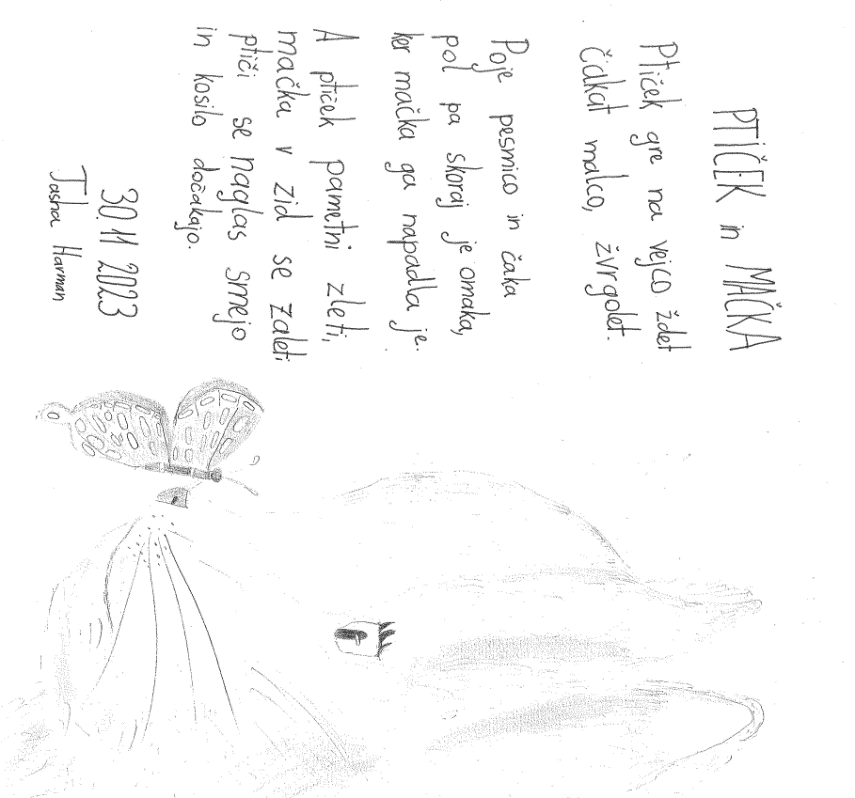 PTIČEK in MAČKA
Ptiček gre na vejco ždet
čakat malco, žvrgolet.
Poje pesmico in čaka
pol pa skoraj je omaka,
ker mačka ga napadla je.
A ptiček pametni zleti,
mačka v zid se zaleti
ptiči se naglas smejo
in kosilo dočakajo.
30.11 2023
Tasha Harman